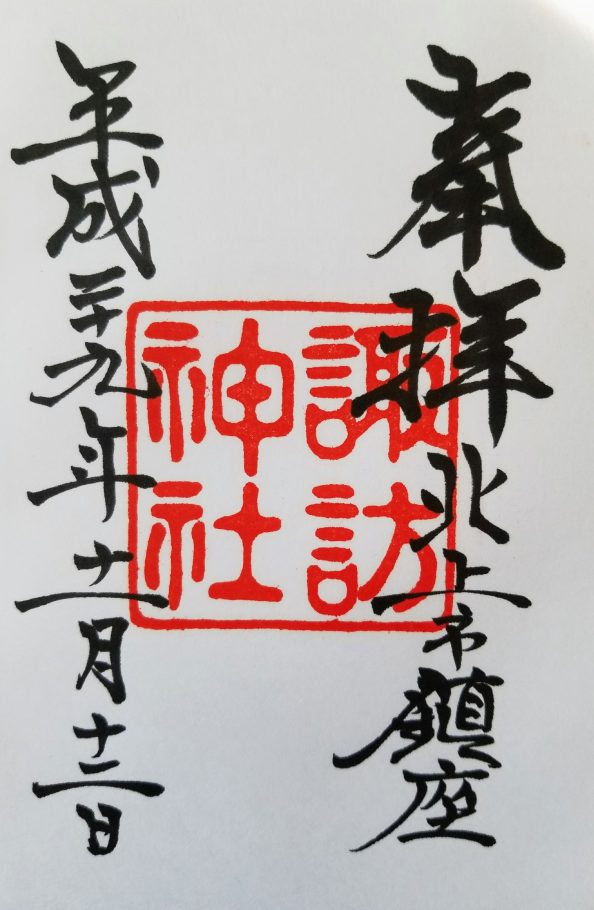 奉拝 北上市鎮座
諏訪
神社
平成二十九年十一月十二日